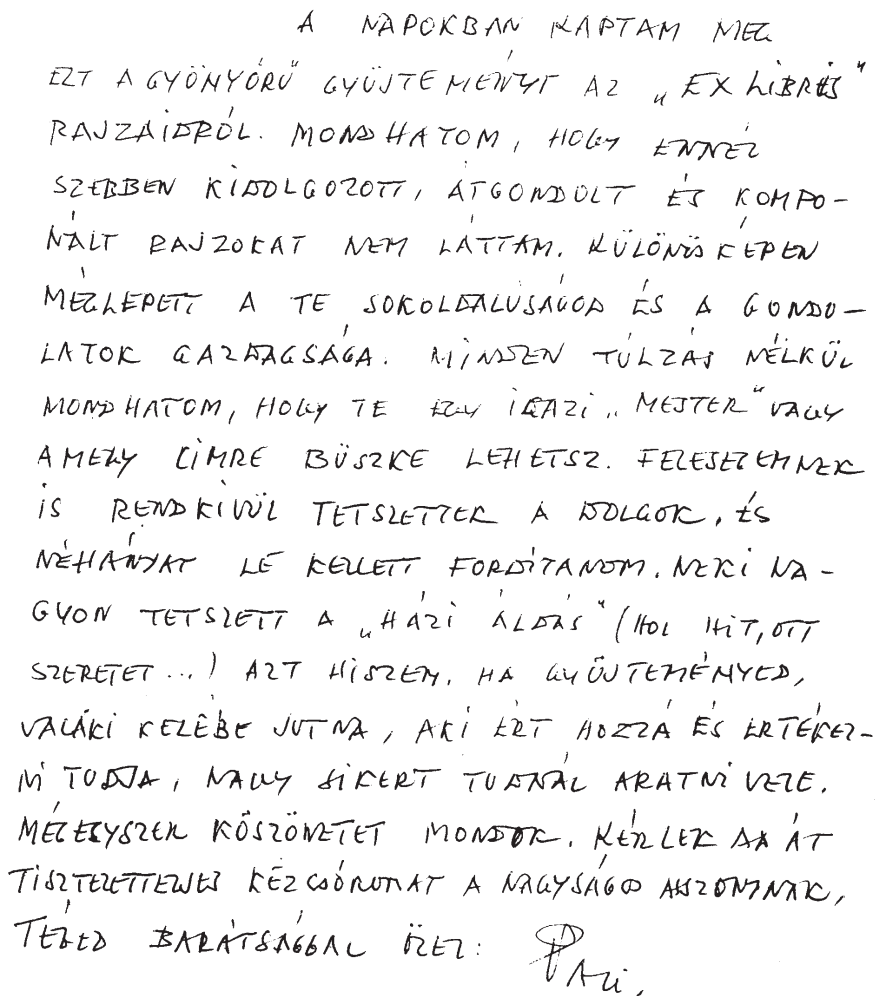 A NAPOKBAN KAPTAM MEG
EZT A GYÖNYÖRŰ GYŰJTEMÉNYT AZ „EX LIBRIS"
RAJZAIDRÓL. MONDHATOM, HOGY ENNÉL
SZEBBEN KIDOLGOZOTT, ÁTGONDOLT ÉS KOMPO-
NÁLT RAJZOKAT NEM LÁTTAM. KÜLÖNÖSKÉPEN
MEGLEPETT A TE SOKOLDALUSÁGOD ÉS A GONDO-
LATOK GAZDAGSÁGA. MINDEN TÚLZÁS NÉLKÜL
MONDHATOM, HOGY TE EGY IGAZI „MESTER" VAGY
AMELY CÍMRE BÜSZKE LEHETSZ. FELESÉGEMNEK
IS RENDKÍVÜL TETSZETTEK A DOLGOK, ÉS
NÉHÁNYAT LE KELLETT FORDÍTANOM. NEKI NA-
GYON TETSZETT A „HÁZI ÁLDÁS" (HOL HIT, OTT
SZERETET ...) AZT HISZEM, HA GYŰJTEMÉNYED,
VALAKI KEZÉBE JUTNA, AKI ÉRT HOZZÁ ÉS ÉRTÉKEL-
NI TUDJA, NAGY SIKERT TUDNÁL ARATNI VELE.
MÉGEGYSZER KÖSZÖNETET MONDOK. KÉRLEK ADD ÁT
TISZTELETTELJES KÉZCSÓKOMAT A NAGYSÁGOS ASSZONYNAK,
TÉGED BARÁTSÁGGAL ÖLEL: